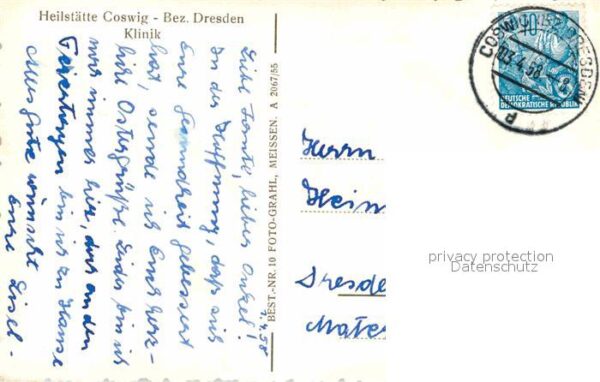 Heilstätte Coswig - Bez. Dresden
Klinik
Liebe Tante, lieber Onkel!
In der Hoffnung, daß sich
Eure Gesundheit gebessert
hat, sende ich Euch herz-
liche Ostergrüße. Leider bin ich
noch immer hier, doch an den
Feiertagen bin ich zu Hause
Alles Gute wünscht
Eure Lisel -
1.4.58
BEST.-NR. 10 FOTO-GRAHL, MEISSEN. A 2067/55
10
DEUTSCHE
DEMOKRATISCHE REPUBLIK
COSWIG (BZ. DRESDEN)
03.4.58 - 8
Herrn
Hein
Dresde
Mater
privacy protection
Datenschutz